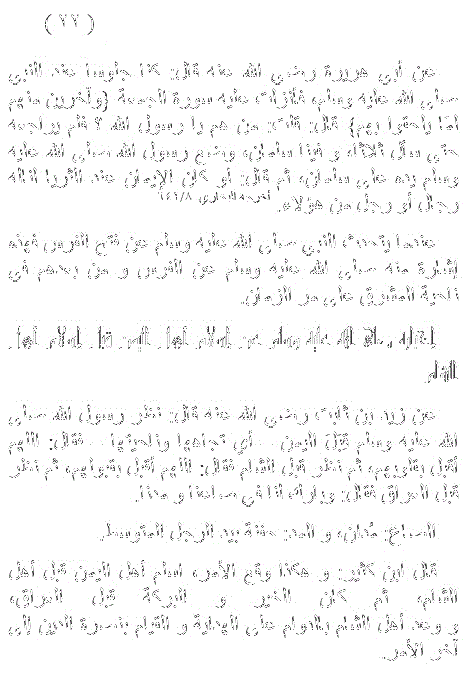 ( ٧٧ )
عن أبي هريرة رضي الله عنه قال: كنا جلوسا عند النبي
صلى الله عليه وسلم، فأنزلت عليه سورة الجمعة {وآخرين منهم
لما يلحقوا بهم} قال: قلت: من هم يا رسول الله ؟ فلم يراجعه
حتى سأل ثلاثا، و فينا سلمان، وضع رسول الله صلى الله عليه
وسلم يده على سلمان، ثم قال: لو كان الإيمان عند الثريا لناله
رجال أو رجل من هؤلاء. أخرجه البخاري ٦٤١/٨
عندما يتحدث النبي صلى الله عليه وسلم عن فتح الفرس فهذه
إشارة منه صلى الله عليه وسلم عن الفرس و من بعدهم في
ناحية المشرق على مر الزمان.
إخباره صلى الله عليه وسلم عن إسلام أهل اليمن قبل إسلام أهل
الشام
عن زيد بن ثابت رضي الله عنه قال: نظر رسول الله صلى
الله عليه وسلم قِبَلَ اليمن -- أي تجاهها وناحيتها -- فقال: اللهم
أقبل بقلوبهم، ثم نظر قبل الشام فقال: اللهم أقبل بقلوبهم، ثم نظر
قبل العراق فقال: وبارك لنا في صاعنا و مدنا.
الصاع: مُدان، و المد: حفنة بيد الرجل المتوسط.
قال ابن كثير: و هكذا وقع الأمر، أسلم أهل اليمن قبل أهل
الشام، ثم كان الخير و البركة قبل العراق،
و وعد أهل الشام بالدوام على الهداية و القيام بنصرة الدين إلى
آخر الأمر.